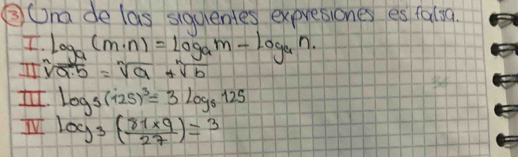 ③ Una de las siguientes expresiones es falsa.
I. Logₐ(m·n) = Logₐm - Logₐn.
II ⁿ√a·b = ⁿ√a + ⁿ√b
III. Log₅(125)³ = 3 Log₅ 125
IV Log₃ (81×9/27) = 3